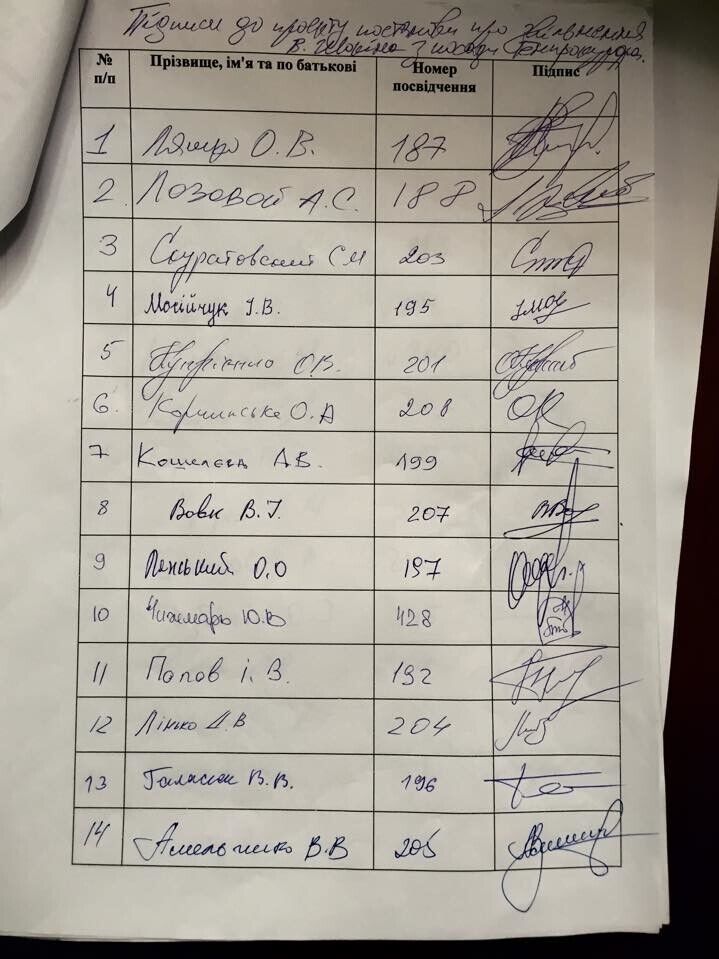 Підписи до проекту постанови про звільнення
В. Шокіна з посади Генпрокурора.
№ п/п Прізвище, ім'я та по батькові Номер посвідчення Підпис
1 Ляшко О.В. 187
2. Лозовой А.С. 188
3 Скуратовский С М 203
4 Мосійчук І.В. 195
5 Купрієнко О.В. 201
6. Корчинська О.А 208
7 Кошелєва А В. 199
8 Вовк В.І. 207
9 Ленський О.О 197
10 Чижмарь Ю.В 428
11 Попов і. В. 192
12 Лінько Д.В 204
13 Галасюк В.В. 196
14 Амельченко В.В 205